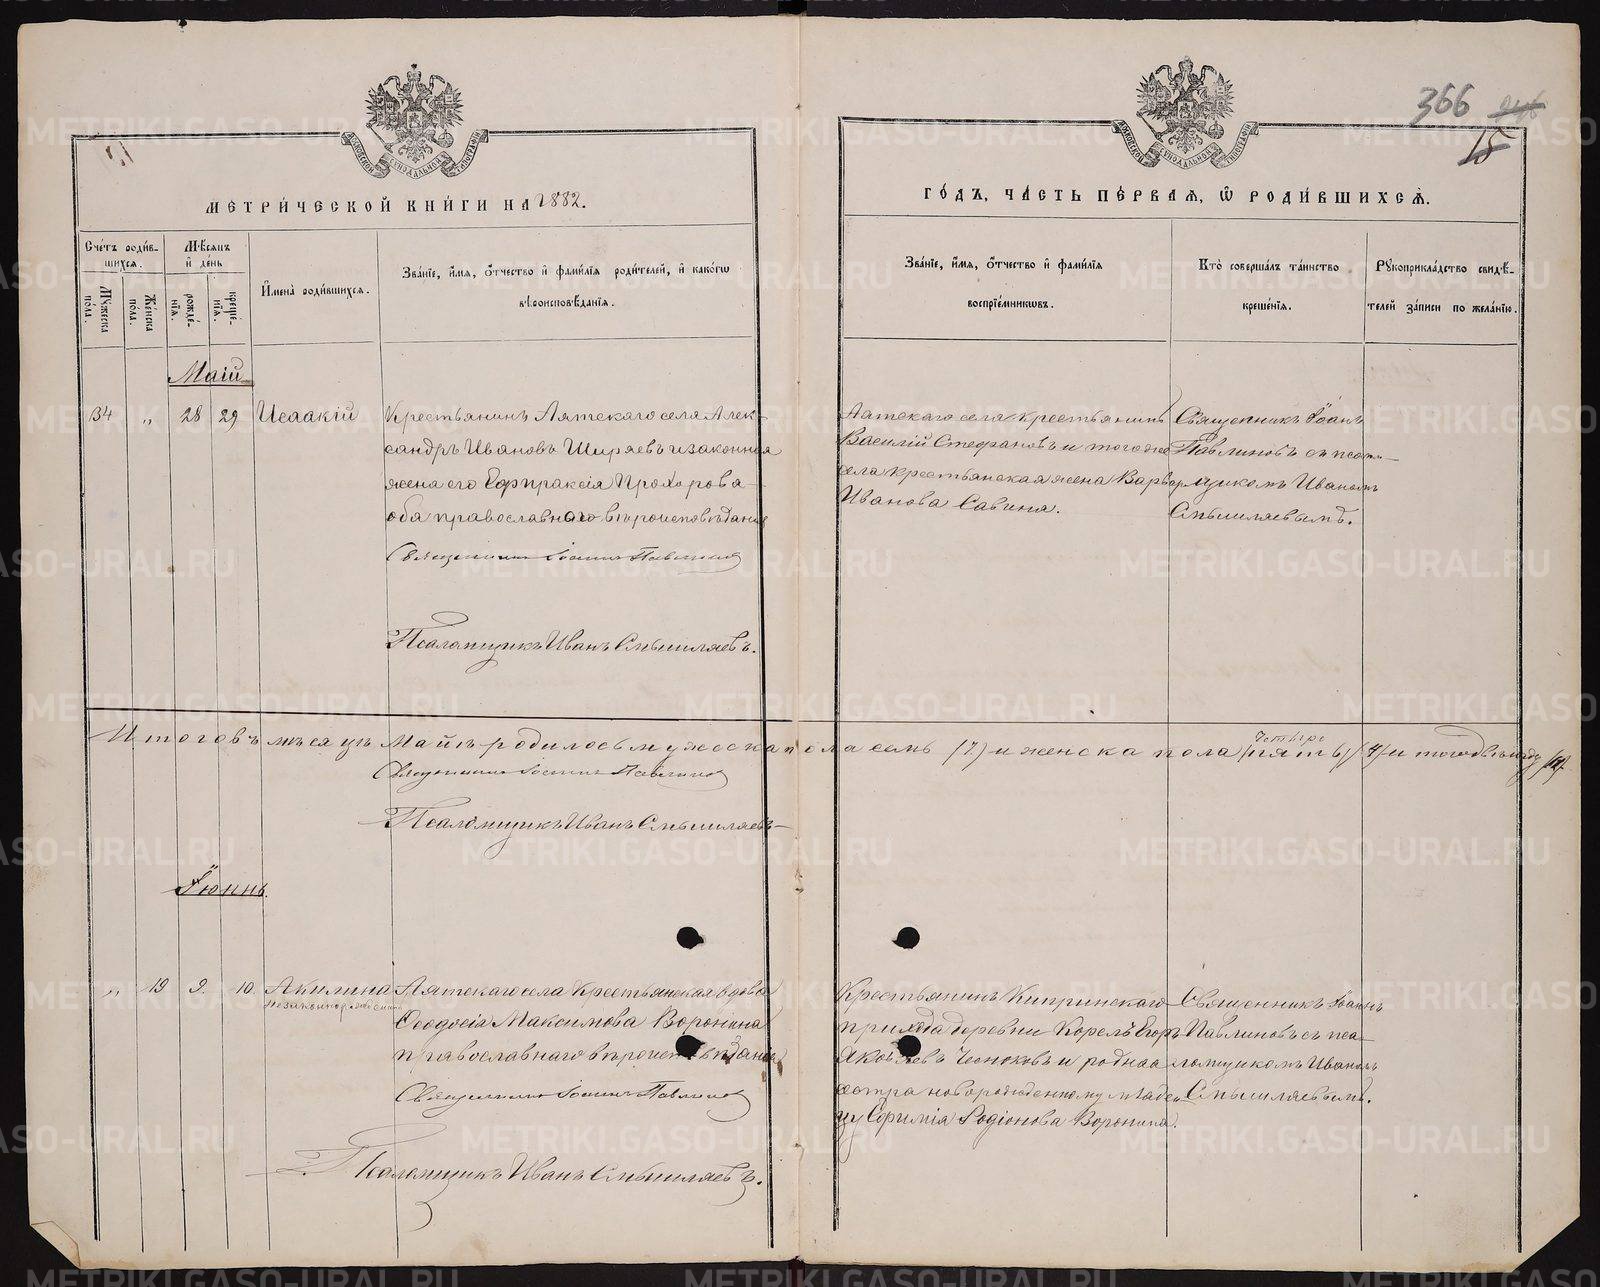 366 246
15
МЕТРИ́ЧЕСКОЙ КНИ́ГИ НА 1882.
ГО́ДЪ, ЧА́СТЬ ПЕ́РВАЯ, Ѿ РОДИ́ВШИХСЯ.
Сче́тъ роди́в-
шихся.
Му́жеска
по́ла.
Же́нска
пола.
Мѣсяцъ
и́ де́нь
рожде́-
нія.
креще́-
нія.
И́мена̀ роди́вшихся.
Зва́ніе, и́мя, о́тчество и́ фами́лія роди́телей, и́ како́гѡ
вѣроисповѣ́данія.
Зва́ніе, и́мя, о́тчество и́ фами́лія
воспріе́мникѡвъ.
Кто̀ соверша́лъ та́инство
креще́нія.
Рꙋкоприкла́дство свидѣ́-
телей за́писи по жела́нію.
Маій
34 „ 28 29 Исаакій
Крестьянинъ Лятскаго села Алек-
сандръ Ивановъ Ширяевъ и законная
жена его Евпраксія Прохорова
оба православнаго вѣроисповѣданія
Священникъ Іоаннъ Павлиновъ
Псаломщикъ Иванъ Смышляевъ.
Лятскаго села крестьянинъ
Василій Стефановъ и тогоже
села крестьянская жена Варвара
Иванова Савина.
Священникъ Іоаннъ
Павлиновъ съ псало-
мщикомъ Иваномъ
Смышляевымъ.
Итого въ мѣсяцѣ Маѣ родилось мужеска пола семь (7) и женска пола пять четыре (4) и того въ маѣ (11).
Священникъ Іоаннъ Павлиновъ
Псаломщикъ Иванъ Смышляевъ
Іюнь.
„ 19 9. 10. Акилина
незаконорожденная
Лятскаго села Крестьянская вдова
Ѳеодосія Максимова Воронина
православнаго вѣроисповѣданія
Священникъ Іоаннъ Павлиновъ
Псаломщикъ Иванъ Смышляевъ.
Крестьянинъ Кипринскаго
прихода деревни Корелъ Егоръ
Яковлевъ Чесноковъ и родная
сестра новорожденному младен-
цу Евфимія Родіонова Воронина.
Священникъ Іоаннъ
Павлиновъ съ пса-
ломщикомъ Иваномъ
Смышляевымъ.
METRIKI.GASO-URAL.RU